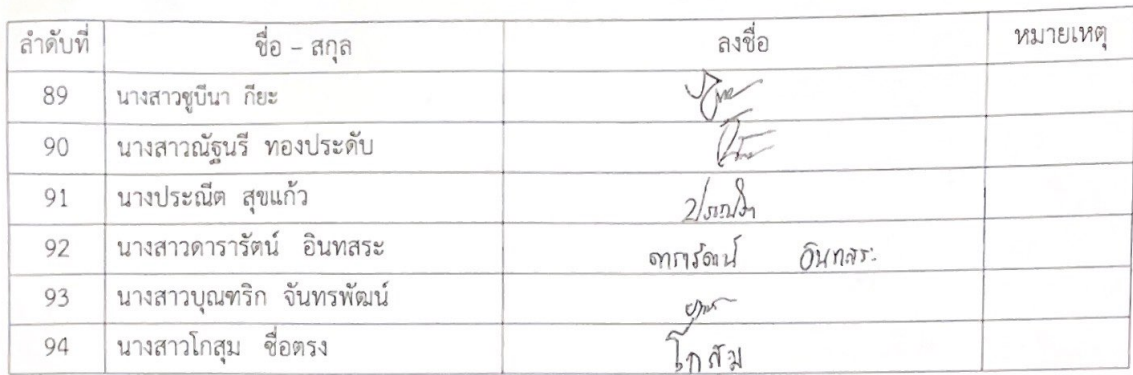 ลำดับที่ ชื่อ - สกุล ลงชื่อ หมายเหตุ
89 นางสาวซูบีนา กียะ
90 นางสาวณัฐนรี ทองประดับ
91 นางประณีต สุขแก้ว ประณีต
92 นางสาวดารารัตน์ อินทสระ ดารารัตน์ อินทสระ
93 นางสาวบุณฑริก จันทรพัฒน์
94 นางสาวโกสุม ชื่อตรง โกสุม